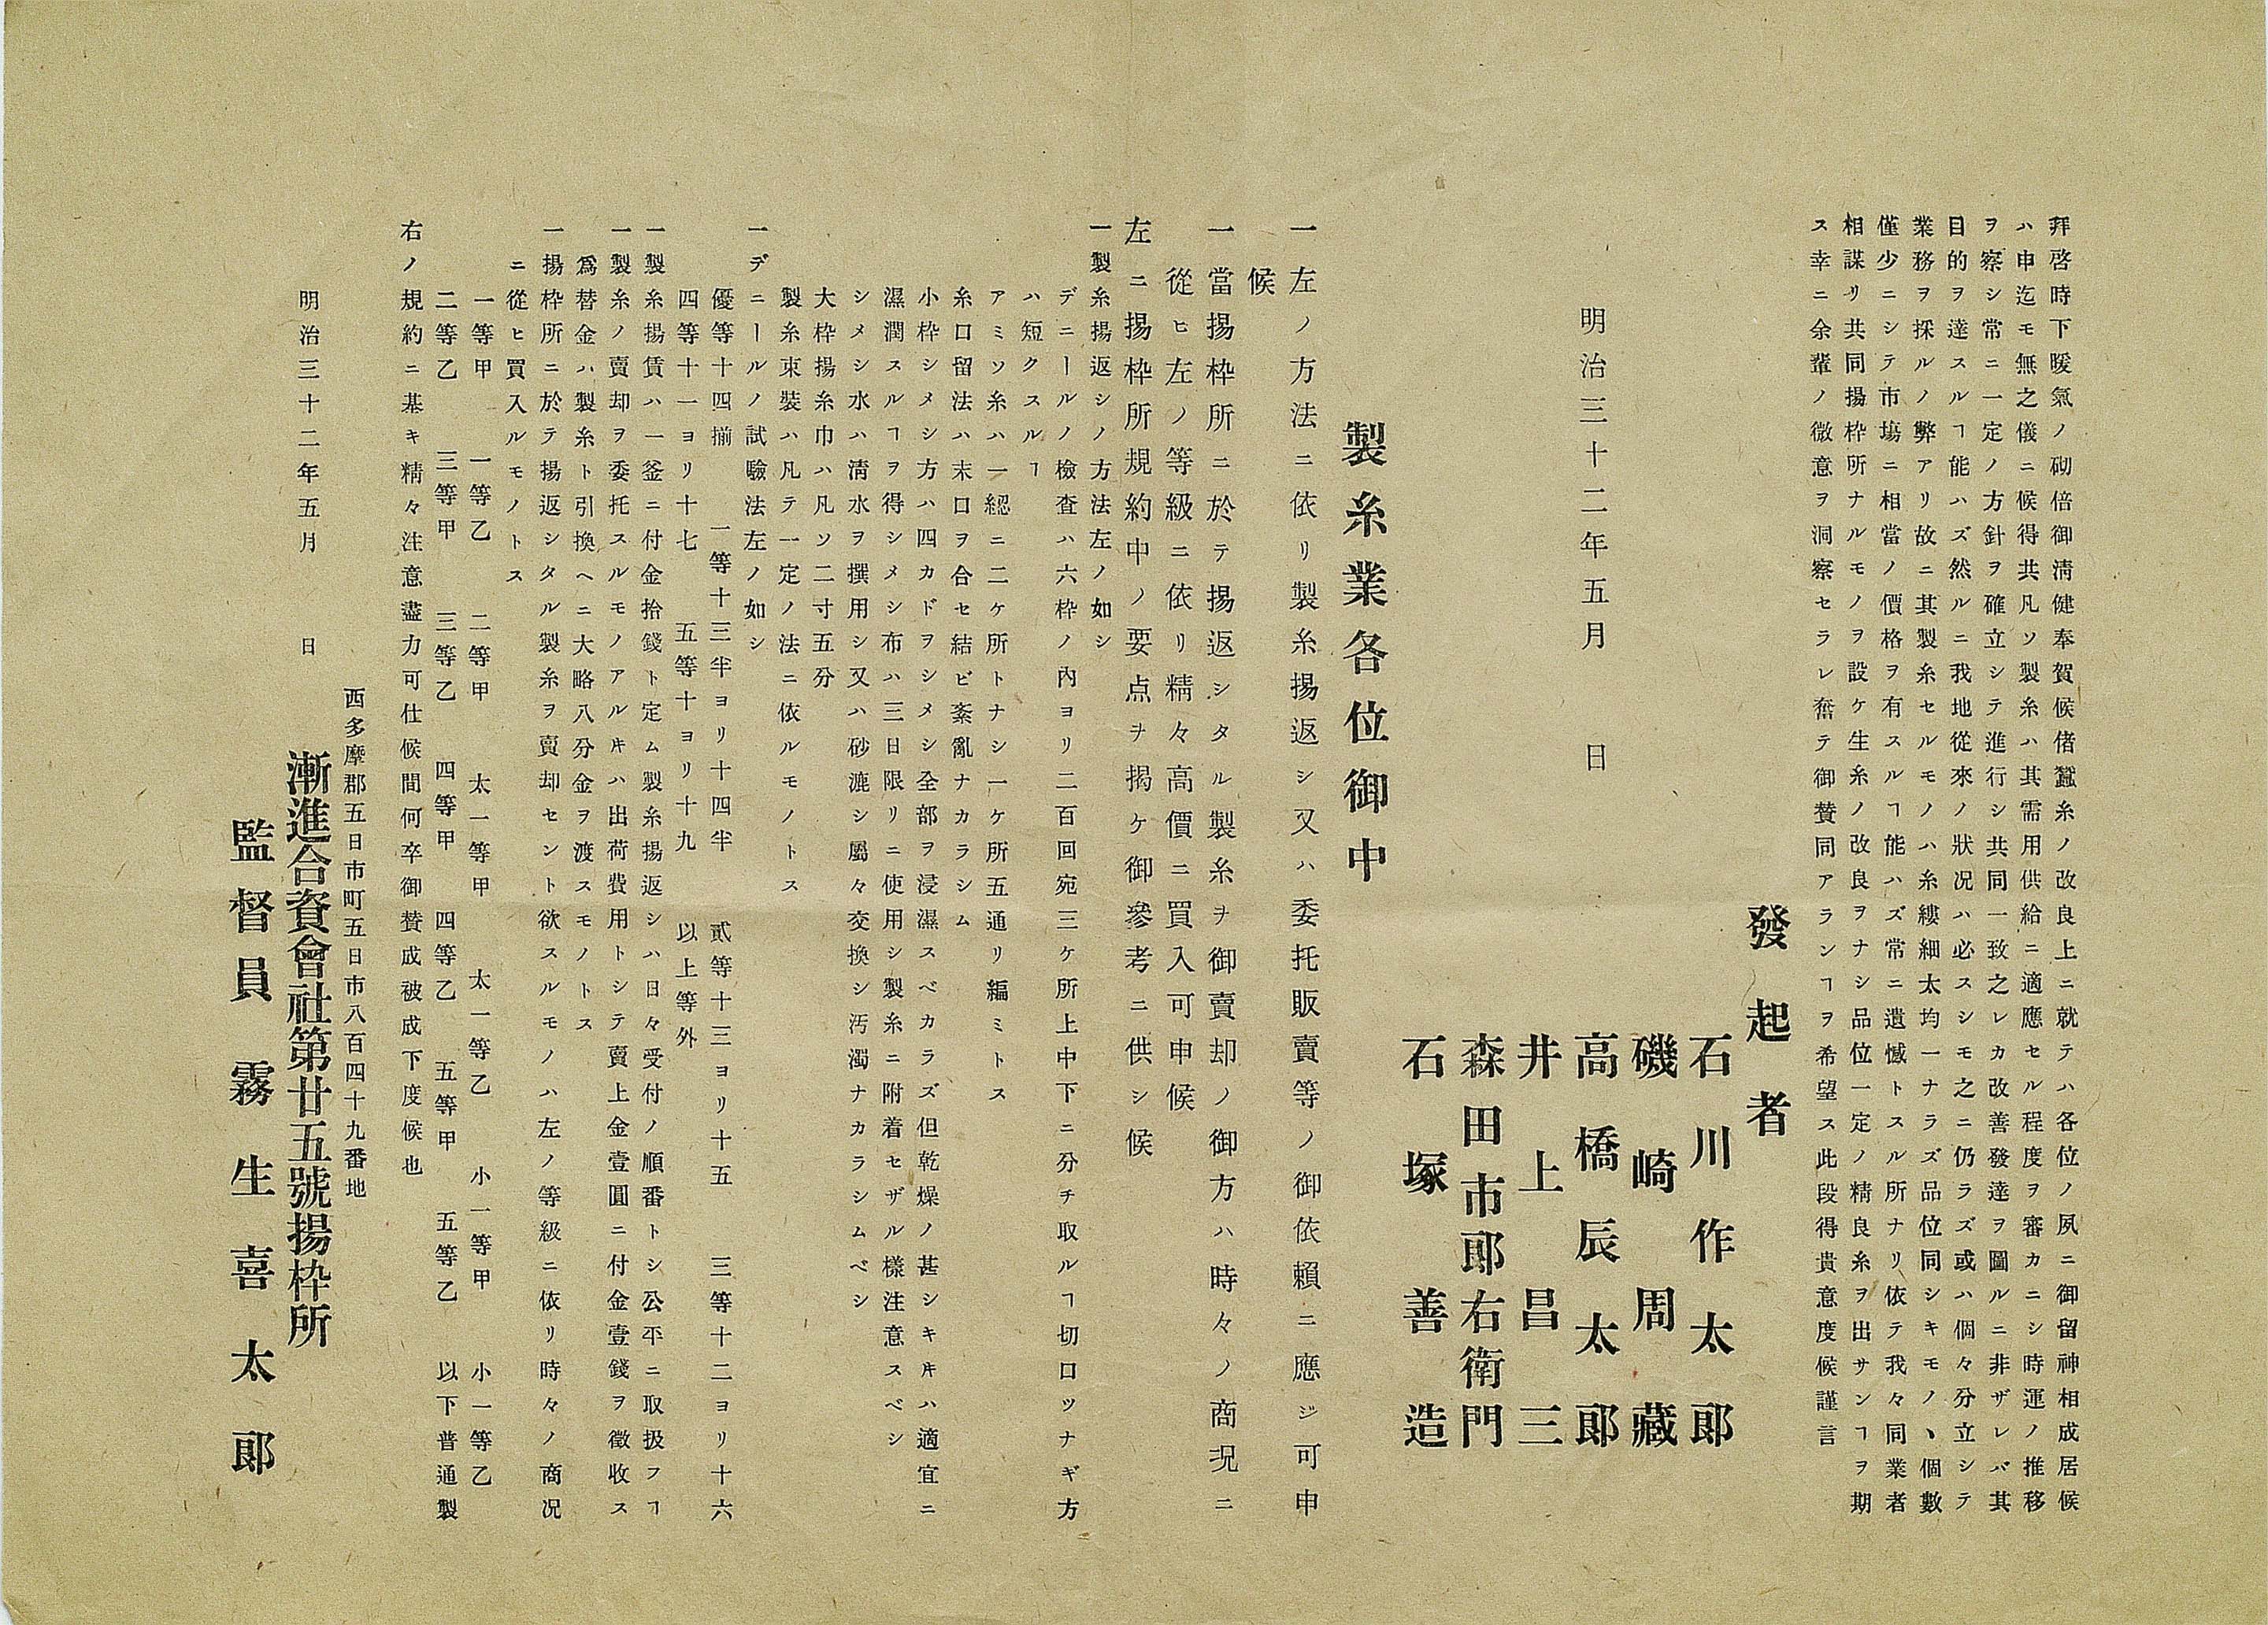 拜啓時下暖氣ノ砌倍御淸健奉賀候偖蠶糸ノ改良上ニ就テハ各位ノ夙ニ御留神相成居候
ハ申迄モ無之儀ニ候得共凡ソ製糸ハ其需用供給ニ適應セル程度ヲ審カニシ時運ノ推移
ヲ察シ常ニ一定ノ方針ヲ確立シテ進行シ共同一致之レカ改善發達ヲ圖ルニ非ザレバ其
目的ヲ達スルヿ能ハズ然ルニ我地從來ノ狀况ハ必スシモ之ニ仍ラズ或ハ個々分立シテ
業務ヲ採ルノ弊アリ故ニ其製糸セルモノハ糸縷細太均一ナラズ品位同シキモノヽ個數
僅少ニシテ市塲ニ相當ノ價格ヲ有スルヿ能ハズ常ニ遺憾トスル所ナリ依テ我々同業者
相謀リ共同揚枠所ナルモノヲ設ケ生糸ノ改良ヲナシ品位一定ノ精良糸ヲ出サンヿヲ期
ス幸ニ余輩ノ微意ヲ洞察セラレ奮テ御賛同アランヿヲ希望ス此段得貴意度候謹言
發起者
石川作太郎
磯崎周藏
明治三十二年五月 日
高橋辰太郎
井上昌三
森田市郎右衛門
石塚善造
製糸業各位御中
一左ノ方法ニ依リ製糸揚返シ又ハ委托販賣等ノ御依賴ニ應ジ可申
候
一當揚枠所ニ於テ揚返シタル製糸ヲ御賣却ノ御方ハ時々ノ商况ニ
從ヒ左ノ等級ニ依リ精々高價ニ買入可申候
左ニ揚枠所規約中ノ要点ヲ揭ケ御參考ニ供シ候
一製糸揚返シノ方法左ノ如シ
デニールノ檢査ハ六枠ノ內ヨリ二百回宛三ケ所上中下ニ分チ取ルヿ切口ツナギ方
ハ短クスルヿ
アミソ糸ハ一緦ニ二ケ所トナシ一ケ所五通リ編ミトス
糸口留法ハ末口ヲ合セ結ビ紊亂ナカラシム
小枠シメシ方ハ四カドヲシメシ全部ヲ浸濕スベカラズ但乾燥ノ甚シキ𪜈ハ適宜ニ
濕潤スルヿヲ得シメシ布ハ三日限リニ使用シ製糸ニ附着セザル樣注意スベシ
シメシ水ハ淸水ヲ撰用シ又ハ砂漉シ屬々交換シ汚濁ナカラシムベシ
大枠揚糸巾ハ凡ソ二寸五分
製糸束裝ハ凡テ一定ノ法ニ依ルモノトス
一デニールノ試驗法左ノ如シ
優等十四揃 一等十三半ヨリ十四半 貳等十三ヨリ十五 三等十二ヨリ十六
四等十一ヨリ十七 五等十ヨリ十九 以上等外
一製糸揚賃ハ一釜ニ付金拾錢ト定ム製糸揚返シハ日々受付ノ順番トシ公平ニ取扱フヿ
一製糸ノ賣却ヲ委托スルモノアル𪜈ハ出荷費用トシテ賣上金壹圓ニ付金壹錢ヲ徵收ス
爲替金ハ製糸ト引換ヘニ大略八分金ヲ渡スモノトス
一揚枠所ニ於テ揚返シタル製糸ヲ賣却セント欲スルモノハ左ノ等級ニ依リ時々ノ商况
ニ從ヒ買入ルモノトス
一等甲 一等乙 二等甲 太一等甲 太一等乙 小一等甲 小一等乙
二等乙 三等甲 三等乙 四等甲 四等乙 五等甲 五等乙 以下普通製
右ノ規約ニ基キ精々注意盡力可仕候間何卒御賛成被成下度候也
西多摩郡五日市町五日市八百四十九番地
明治三十二年五月 日
漸進合資會社第廿五號揚枠所
監督員 霧生喜太郎